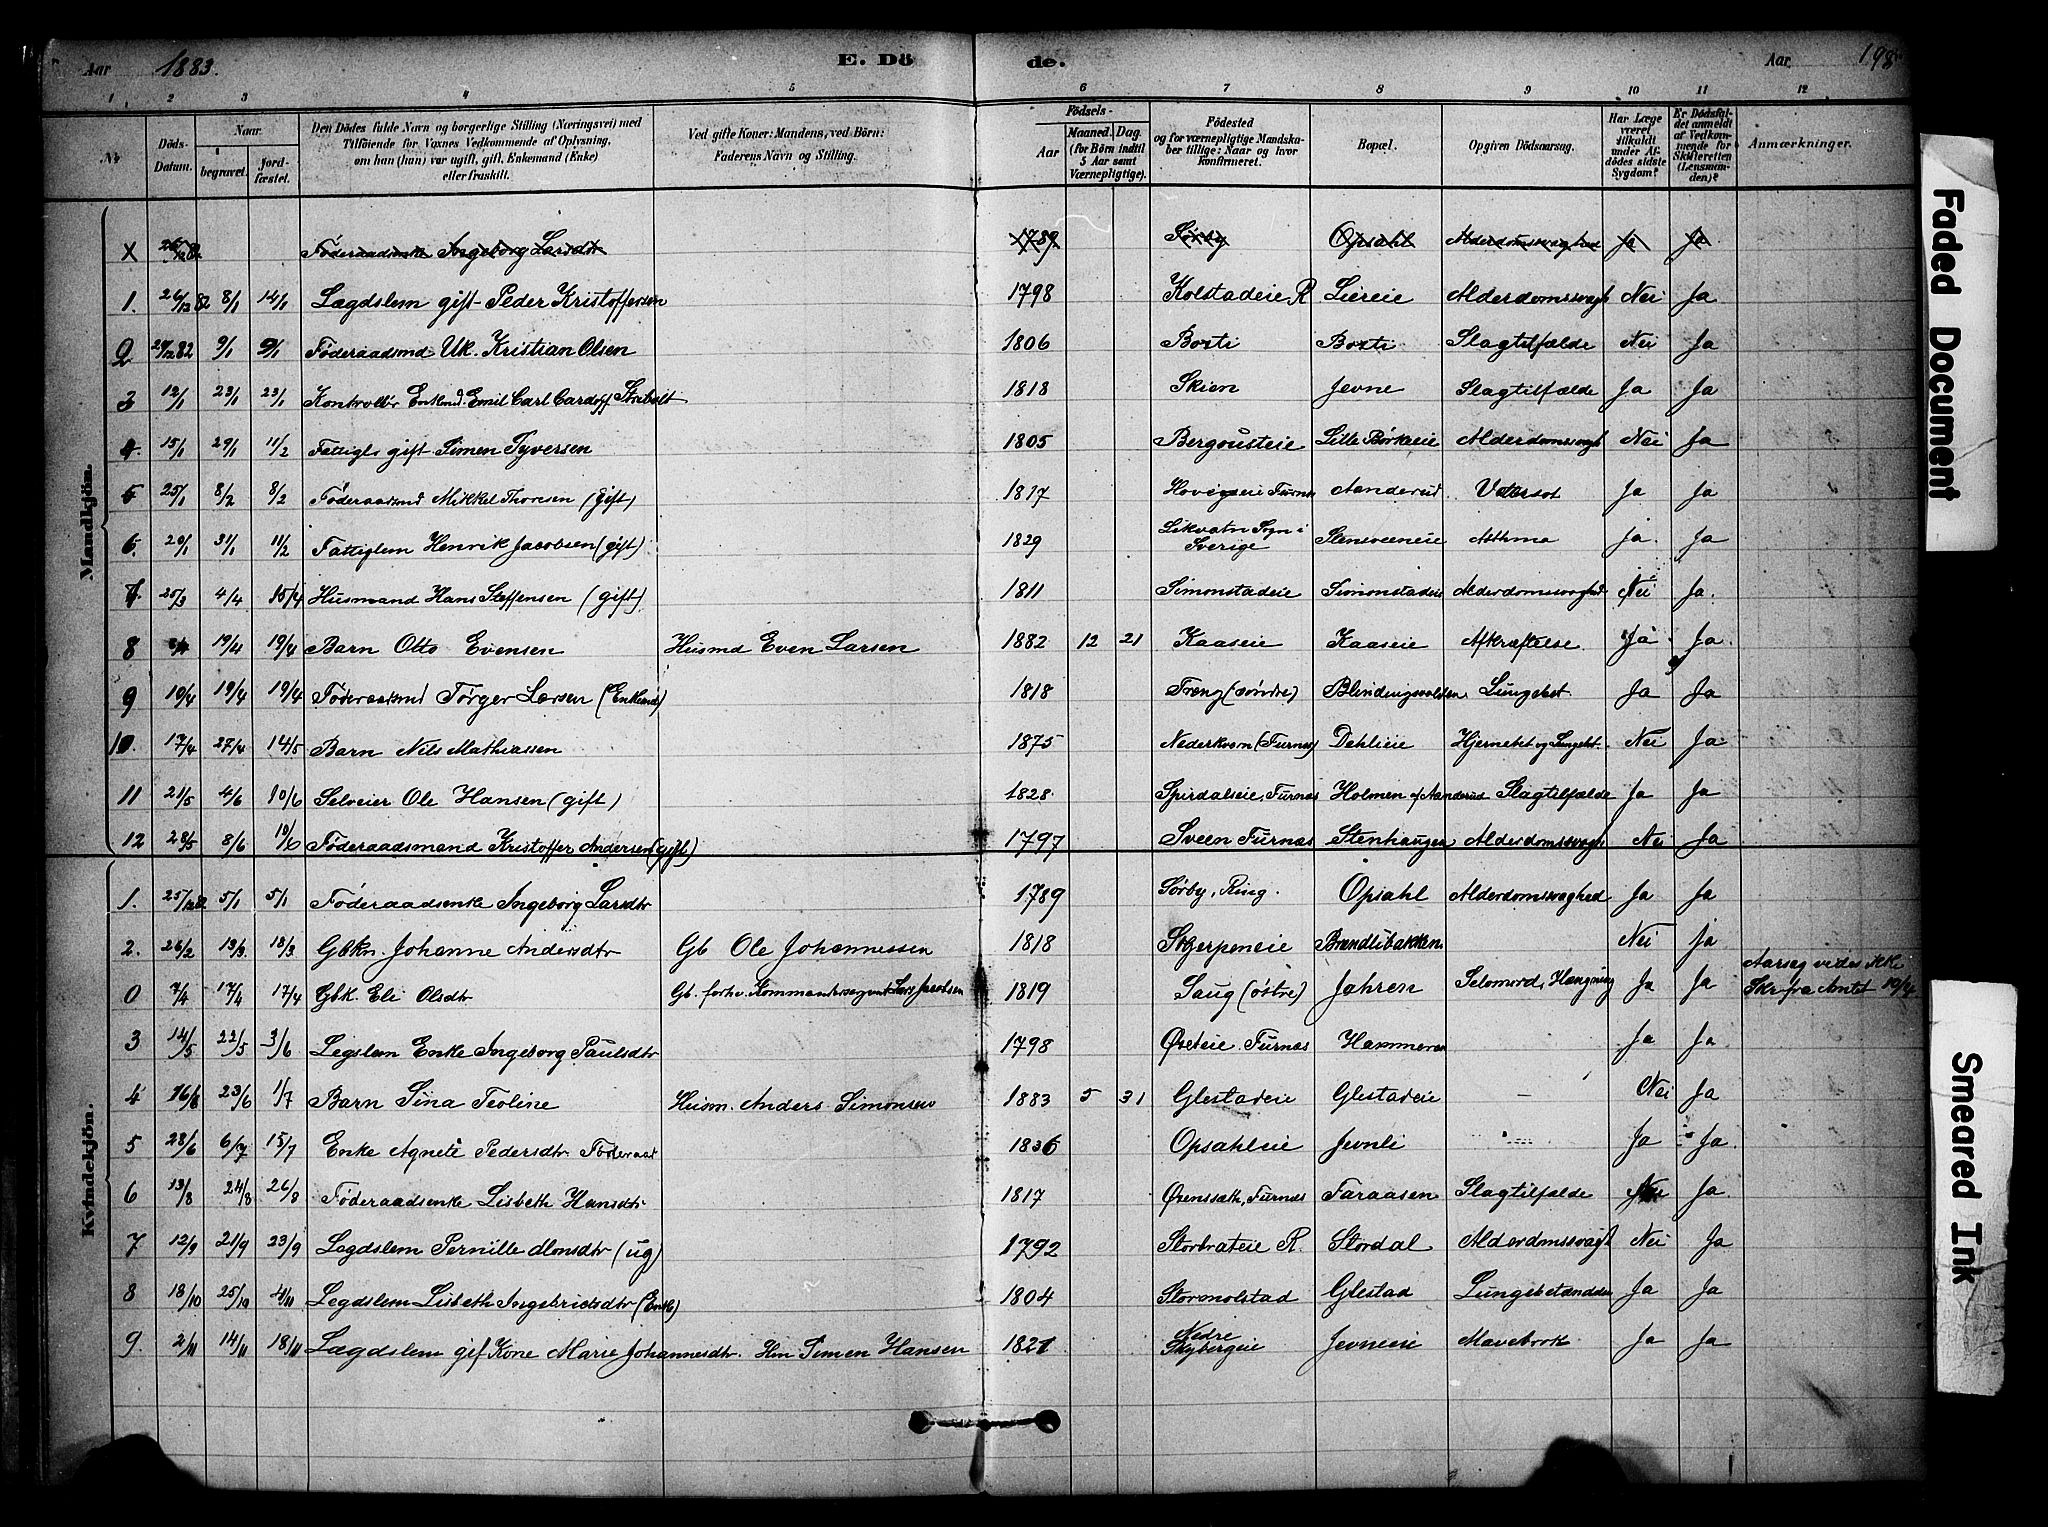 Aar 1883. E. Döde. Aar 198
1 2 3 4 5 6 7 8 9 10 11 12
Nr. Döds-Datum. Naar. begravet. Jordfæstet. Den Dödes fulde Navn og borgerlige Stilling (Næringsvei) med Tilföiende for Voxnes Vedkommende af Oplysning, om han (hun) var ugift, gift, Enkemand (Enke) eller fraskilt. Ved gifte Koner: Mandens, ved Börn: Faderens Navn og Stilling. Födsels- Aar Maaned. Dag. (for Börn indtil 5 Aar samt Værnepligtige). Födested og for værnepligtige Mandskaber tillige: Naar og hvor konfirmeret. Bopæl. Opgiven Dödsaarsag. Har Læge været tilkaldt under Afdödes sidste Sygdom? Er Dödsfaldet anmeldt af Vedkommende for Skifteretten (Lensmanden)? Anmærkninger.
Mandkjön.
X Föderaadsenke Ingeborg Larsdtr 1789 Sörby Opsahl Alderdomssvaghed Ja Ja
1. 26/12 82 8/1 14/1 Lægdslem gift Peder Kristoffersen 1798 Kolstadeie, R Liereie Alderdomssvagh Nei Ja
2 29/12 82 9/1 9/1 Föderaadsmd Uk. Kristian Olsen 1806 Boxti Boxti Slagtilfælde Nei Ja
3 12/1 23/1 23/1 Kontrollör Enkmd. Emil Carl Stribolt 1818 Skien Jevne Slagtilfælde Ja Ja
4 15/1 29/1 11/2 Fattigl. gift Simen Syversen 1805 Bergousteie Lille Börkeeie Alderdomssvagh Nei Ja
5 25/1 8/2 8/2 Föderaadsmd Mikkel Thoresen (gift) 1817 Furnes Aanderud Vatersot Ja Ja
6. 29/1 31/1 11/2 Fattiglem Henrik Jacobsen (gift) 1829 Sogn i Sverige Stensveeneie Asthma Ja. Ja
7. 25/3 4/4 15/4 Husmand Hans Steffensen (gift) 1811 Simonstadeie Simonstadeie Alderdomssvaghed Nei Ja.
8 19/4 19/4 Barn Otto Evensen Husmd Even Larsen 1882 12 21 Kaaseie Kaaseie Afkræftelse. Ja Ja.
9 10/4 19/4 19/4 Föderaadsmd Törger Larsen (Enkemd) 1818 Freng (söndre) Blindingsvolden Lungebet Ja Ja
10. 17/4 27/4 14/5 Barn Nils Mathiassen 1875 Nederkvern (Furnes) Dehlieie Hjernebt og Lungebt. Nei Ja
11 21/5 4/6 10/6 Selveier Ole Hansen (gift) 1828. Spirdalseie, Furnes Holmen af Aanderud Slagtilfælde Ja Ja
12 28/5 8/6 10/6 Föderaadsmand Kristoffer Andersen (gift) 1797 Sveen Furnes Stenhaugen Alderdomssvagh Nei Ja
Kvindekjön.
1. 25/12 82 5/1 5/1 Föderaadsenke Ingeborg Larsdtr 1789 Sörby, Ring. Opsahl Alderdomssvaghed Ja Ja
2. 26/2 13/3 18/3 Gbkn. Johanne Andersdtr Gb Ole Johannessen 1818 Skjerpeneie Brændlibakken Nei Ja
0 7/4 17/4 17/4 Gbk. Eli Olsdtr Gb. forhv. Kommandersergeant Lars Jacobsen 1819 Saug (östre) Jahren Selvmord, Hængning Ja Ja Aarsag vides ikke Skr fra Amtet 10/4
3 14/5 22/5 3/6 Legslem Enke Ingeborg Paulsdtr 1798 Furnes Hammeren Ja Ja
4 16/6 23/6 1/7 Barn Sina Teoline Husm. Anders Simonsen 1883 5 31 Glestadeie Glestadeie — Nei Ja
5 28/6 6/7 15/7 Enke Agnete Pedersdtr. Föderaad 1836 Opsahleie Jevnli Ja Ja
6 13/8 24/8 26/8 Föderaadsenke Lisbeth Hansdtr 1817 Furnes Faraasen Slagtilfælde Nei Ja
7 12/9 21/9 23/9 Legdslem Pernille (ug) 1792 Storbrateie R. Stordal Alderdomssvagh Nei Ja
8 18/10 25/10 4/11 Legdslem Lisbeth Ingebrigtsdtr (Enke) 1804 Stormolstad Glestad Lungebetændelse Ja Ja
9. 2/11 14/11 18/11 Lægdslem gif Kone Marie Johannesdtr. Hm Simen Hansen 1821 Nedre Skybergeie Jevneeie Mavebrok Ja Ja
Faded Document
Smeared Ink